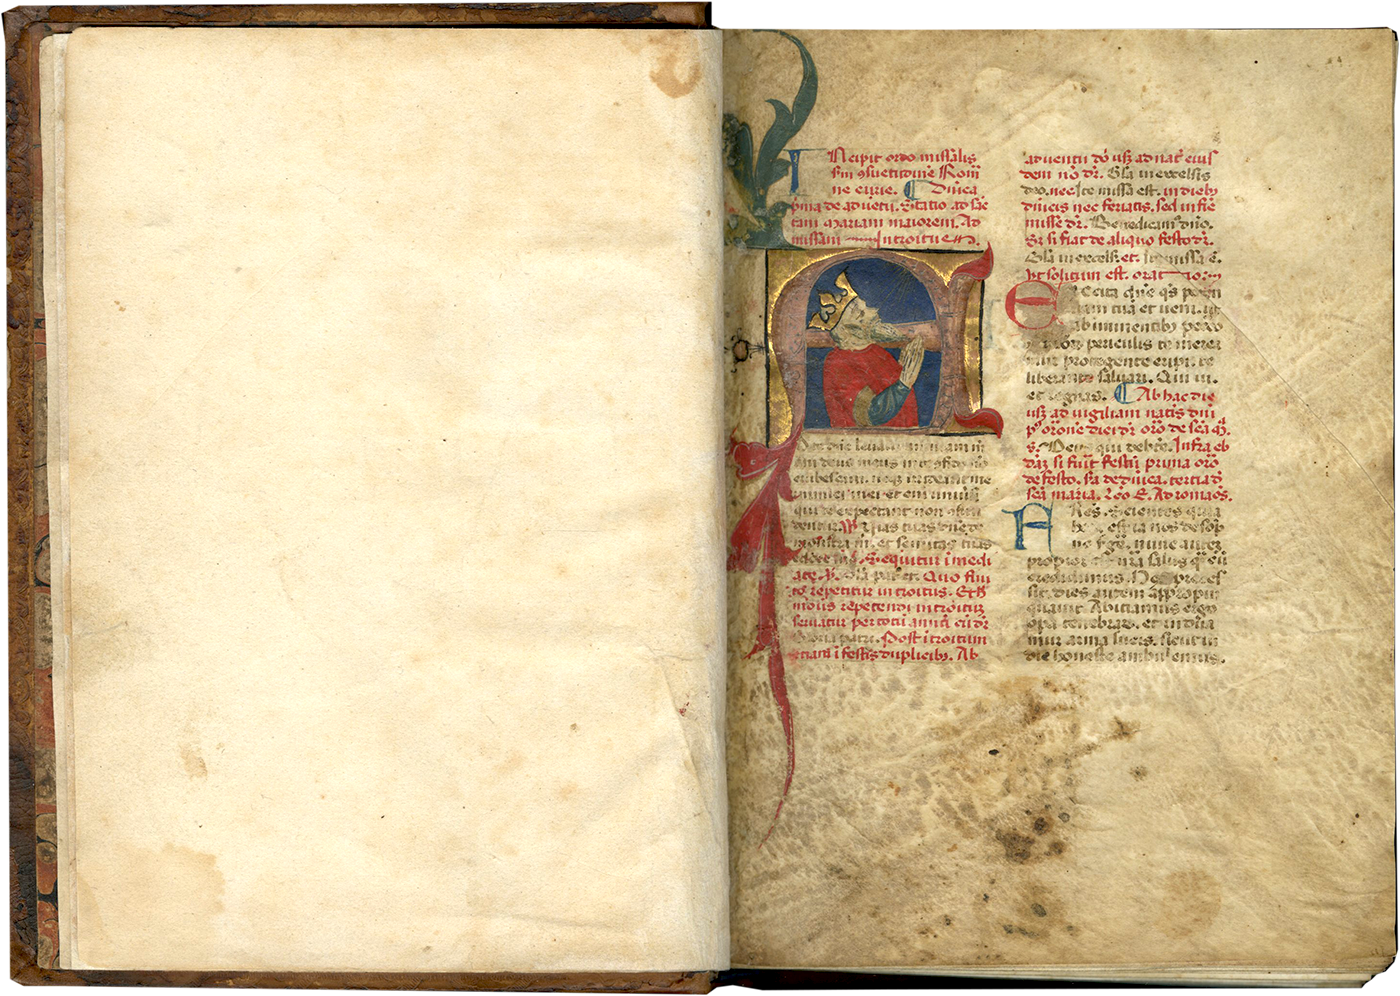 INcipit ordo missalis
scdm ɔsuetudinē Romā
ne curie. ¶ Dnica
pͥma de aduētu. Statio ad sāc
tam Mariam maiorem. Ad
missam Introitus.
AD te leuaui animam m̄
am deus meus in te ɔfido nō
erubescam. neqʒ irrideant me
inimici mei et eni uniūsi
qui te expectant non ɔfun
dentur. Uias tuas dn̄e de
mōstra m̄. et semitas tuas
edoce me. Sequitur īmedi
ate. Gl̄a pat̄. Quo finī
to repetitur introitus. Et h̄
modus repetendi introitum
seruatur per totū annū cū dr̄
Gloria patri. Post ītroitum
etiā ī festis duplicibʒ. Ab
aduentu dn̄i usqʒ ad nat̄ eius
dem nō dr̄. Gl̄a in excelsis
deo. nec Ite missa est. in diebʒ
dn̄icis nec feriatis. sed in fine
misse dr̄. Benedicamus dn̄o.
Et si fiat de aliquo festo dr̄.
Gl̄a in excelsis. et. Ite missa ē.
ut solitum est. orat
EXcita dn̄e qs̄ poten
tiam tuā et ueni. ut
ab imminentibʒ pecca
toʒ nr̄oʒ periculis te merea
mur protegente eripi. te
liberante saluari. Qui uiu.
et regnas. ¶ Ab hac die
usqʒ ad uigiliam natis dn̄i
p̄ or̄one diei dr̄ or̄o de sc̄a M̄.
s. Deus qui de bt̄e. Infra eb
dōʒ si fiūt festū prima or̄o
de festo. sc̄da de dn̄ica. tertia de
sc̄a maria. Lc̄o E. Ad romaos.
FRēs. Scientes quia
hora est iā nos de sop
no surgē. nunc autē
propior est nr̄a salus quā cū
credidimus. Nox preces
sit. dies autem appropin
quauit. Abiciamus ergo
opera tenebraʒ. et indua
mur arma lucis. sicut in
die honeste ambulemus.